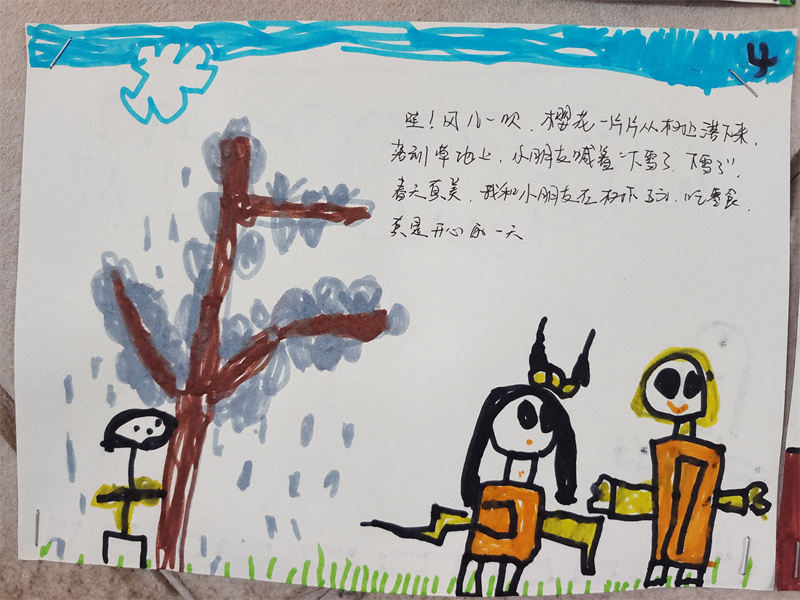 4
哇！风儿一吹，樱花一片片从树上落下来，
落到草地上，小朋友喊着“下雪了，下雪了”，
春天真美，我和小朋友在树下玩，吃零食，
真是开心的一天